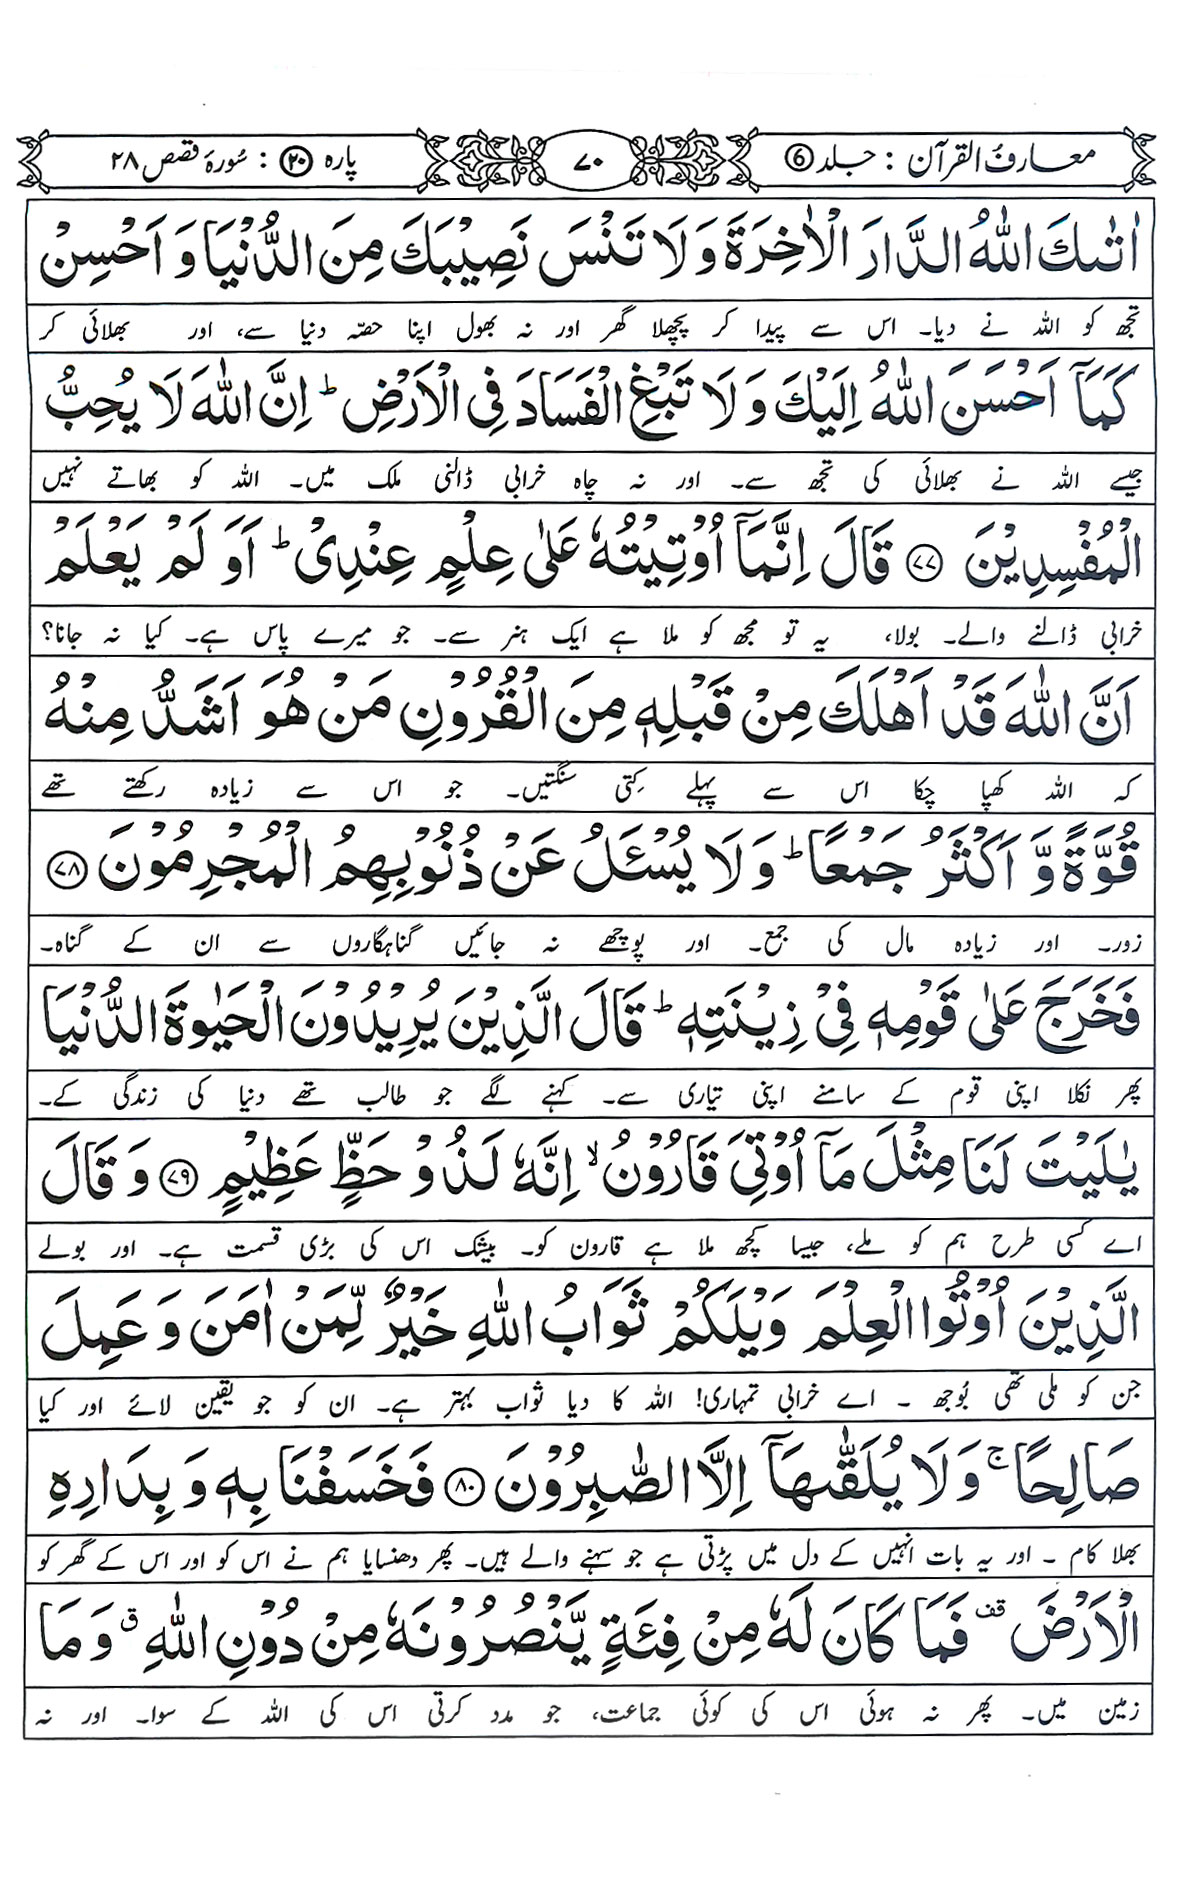 معارف القرآن : جلد ⑥
۷۰
پارہ ⑳ : سُورۂ قصص ۲۸
اٰتٰىكَ اللّٰهُ الدَّارَ الْاٰخِرَةَ وَ لَا تَنْسَ نَصِيْبَكَ مِنَ الدُّنْيَا وَ اَحْسِنْ
تجھ کو اللہ نے دیا۔ اس سے پیدا کر پچھلا گھر اور نہ بھول اپنا حصّہ دنیا سے، اور بھلائی کر
كَمَآ اَحْسَنَ اللّٰهُ اِلَيْكَ وَ لَا تَبْغِ الْفَسَادَ فِى الْاَرْضِ ؕ اِنَّ اللّٰهَ لَا يُحِبُّ
جیسے اللہ نے بھلائی کی تجھ سے۔ اور نہ چاہ خرابی ڈالنی ملک میں۔ اللہ کو بھاتے نہیں
الْمُفْسِدِيْنَ ﴿۷۷﴾ قَالَ اِنَّمَآ اُوْتِيْتُهٗ عَلٰى عِلْمٍ عِنْدِىْ ؕ اَوَ لَمْ يَعْلَمْ
خرابی ڈالنے والے۔ بولا، یہ تو مجھ کو ملا ہے ایک ہنر سے۔ جو میرے پاس ہے۔ کیا نہ جانا؟
اَنَّ اللّٰهَ قَدْ اَهْلَكَ مِنْ قَبْلِهٖ مِنَ الْقُرُوْنِ مَنْ هُوَ اَشَدُّ مِنْهُ
کہ اللہ کھپا چکا اس سے پہلے کِتی سنگتیں۔ جو اس سے زیادہ رکھتے تھے
قُوَّةً وَّ اَكْثَرُ جَمْعًا ؕ وَ لَا يُسْئَلُ عَنْ ذُنُوْبِهِمُ الْمُجْرِمُوْنَ ﴿۷۸﴾
زور۔ اور زیادہ مال کی جمع۔ اور پوچھے نہ جائیں گناہگاروں سے ان کے گناہ۔
فَخَرَجَ عَلٰى قَوْمِهٖ فِىْ زِيْنَتِهٖ ؕ قَالَ الَّذِيْنَ يُرِيْدُوْنَ الْحَيٰوةَ الدُّنْيَا
پھر نکلا اپنی قوم کے سامنے اپنی تیاری سے۔ کہنے لگے جو طالب تھے دنیا کی زندگی کے۔
يٰلَيْتَ لَنَا مِثْلَ مَآ اُوْتِىَ قَارُوْنُ ۙ اِنَّهٗ لَذُوْ حَظٍّ عَظِيْمٍ ﴿۷۹﴾ وَ قَالَ
اے کسی طرح ہم کو ملے، جیسا کچھ ملا ہے قارون کو۔ بیشک اس کی بڑی قسمت ہے۔ اور بولے
الَّذِيْنَ اُوْتُوا الْعِلْمَ وَيْلَكُمْ ثَوَابُ اللّٰهِ خَيْرٌ لِّمَنْ اٰمَنَ وَ عَمِلَ
جن کو ملی تھی بُوجھ ۔ اے خرابی تمہاری! اللہ کا دیا ثواب بہتر ہے۔ ان کو جو یقین لائے اور کیا
صَالِحًا ۚ وَ لَا يُلَقّٰىهَآ اِلَّا الصّٰبِرُوْنَ ﴿۸۰﴾ فَخَسَفْنَا بِهٖ وَ بِدَارِهِ
بھلا کام ۔ اور یہ بات انہیں کے دل میں پڑتی ہے جو سہنے والے ہیں۔ پھر دھنسایا ہم نے اس کو اور اس کے گھر کو
الْاَرْضَ قف فَمَا كَانَ لَهٗ مِنْ فِئَةٍ يَّنْصُرُوْنَهٗ مِنْ دُوْنِ اللّٰهِ ق وَ مَا
زمین میں۔ پھر نہ ہوئی اس کی کوئی جماعت، جو مدد کرتی اس کی اللہ کے سوا۔ اور نہ